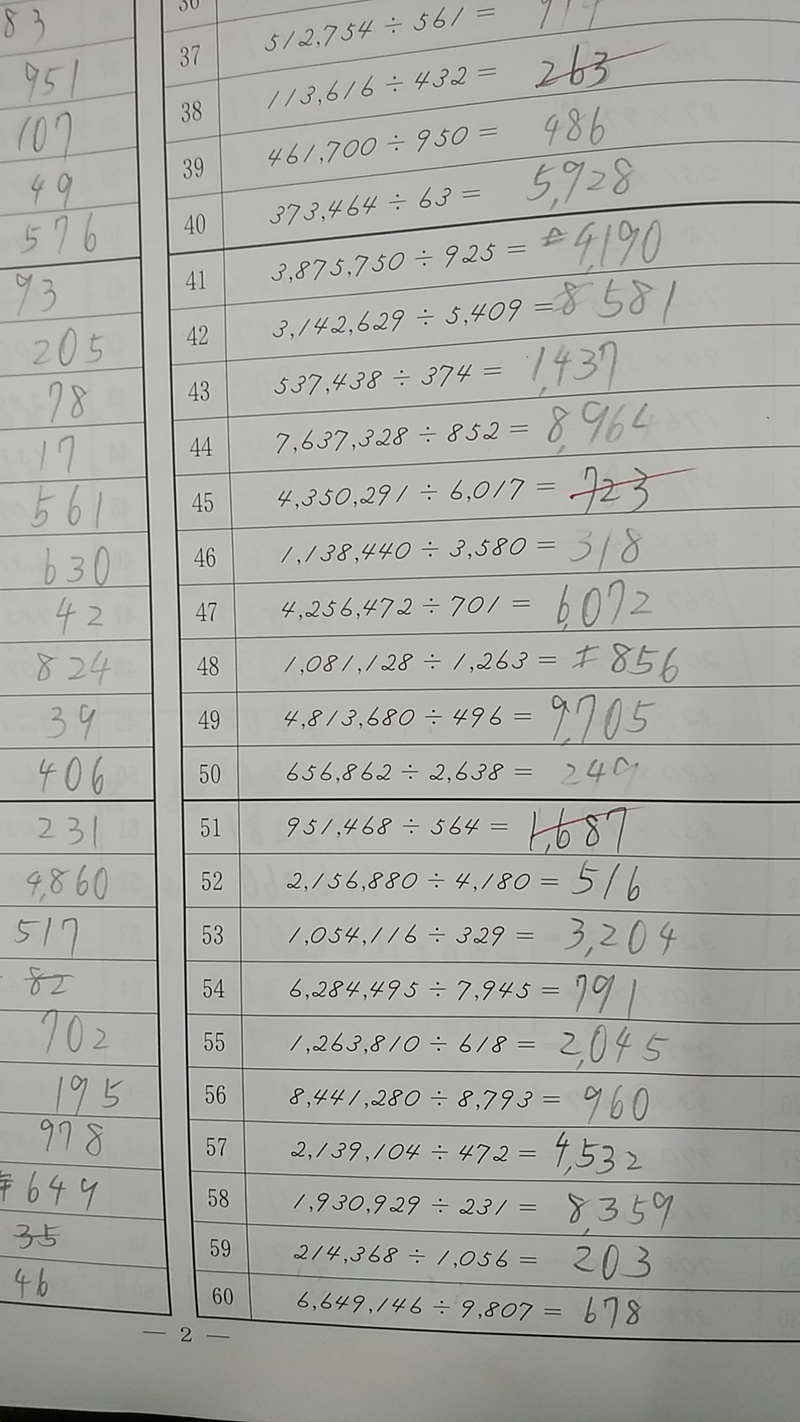 83
951
107
49
576
93
205
78
17
561
630
42
824
39
406
231
4,860
517
82
702
195
978
649
35
46
36
37 512,754 ÷ 561 =
38 113,616 ÷ 432 = 263
39 461,700 ÷ 950 = 486
40 373,464 ÷ 63 = 5,928
41 3,875,750 ÷ 925 = 4,190
42 3,142,629 ÷ 5,409 = 581
43 537,438 ÷ 374 = 1,437
44 7,637,328 ÷ 852 = 8,964
45 4,350,291 ÷ 6,017 = 723
46 1,138,440 ÷ 3,580 = 318
47 4,256,472 ÷ 701 = 6,072
48 1,081,128 ÷ 1,263 = 856
49 4,813,680 ÷ 496 = 9,705
50 656,862 ÷ 2,638 = 249
51 951,468 ÷ 564 = 1,687
52 2,156,880 ÷ 4,180 = 516
53 1,054,116 ÷ 329 = 3,204
54 6,284,495 ÷ 7,945 = 791
55 1,263,810 ÷ 618 = 2,045
56 8,441,280 ÷ 8,793 = 960
57 2,139,104 ÷ 472 = 4,532
58 1,930,929 ÷ 231 = 8,359
59 214,368 ÷ 1,056 = 203
60 6,649,146 ÷ 9,807 = 678
— 2 —